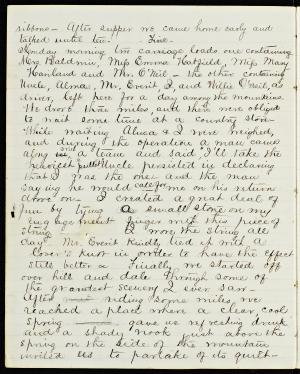 ribbons - After supper we came home early and
talked until ten. - Fine -
Monday morning two carriage loads, one containing
Mrs Baldwin, Miss Emma Hatfield, Miss Mary
Hanland and Mr. O'Neil - the other containing
Uncle, Alma, Mr. Everit, I, and Willie O'Neil, as
driver, left here for a day among the mountains.
We drove three miles, and then were obliged
to wait some time at a country store
While waiting Alma & I were weighed,
and during the operation a man came
along in a team and said, I'll take the
Uncle persisted in declaring
that I was the one and the man
saying he would call for me on his return
drove on - I created a great deal of
fun by tying a small stone on my
finger with this piece of
string I wore the string all
day Mr. Everit kindly tied it with a
Lover's knot in order to have the effect
still better - Finally we started off
over hill and dale through some of
the grandest scenery I ever saw -
After riding some miles, we
reached a place where a clear cool
spring gave us refreshing drink
and a shady nook just above the
spring on the side of the mountain
invited us to partake of its quiet-